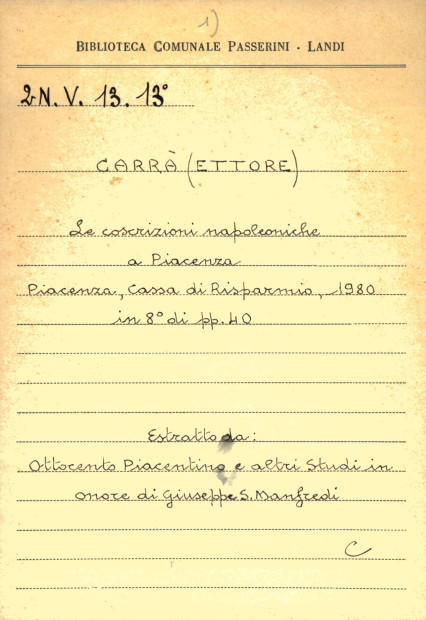 1)
BIBLIOTECA COMUNALE PASSERINI - LANDI
2N. V. 13. 13°
CARRÀ (ETTORE)
Le coscrizioni napoleoniche
a Piacenza
Piacenza, Cassa di Risparmio, 1980
in 8° di pp. 40
Estratto da:
Ottocento Piacentino e altri Studi in
onore di Giuseppe S. Manfredi
C